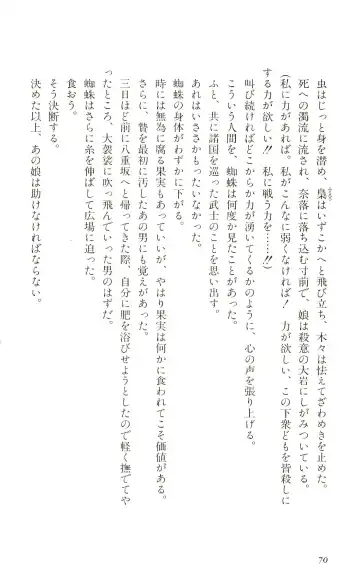 虫はじっと身を潜め、梟はいずこかへと飛び立ち、木々は怯えてざわめきを止めた。
死への濁流に流され、奈落に落ち込む寸前で、娘は殺意の大岩にしがみついている。
(私に力があれば。私がこんなに弱くなければ! 力が欲しい、この下衆どもを皆殺しに
する力が欲しい!! 私に戦う力を……!!)
叫び続ければどこからか力が湧いてくるかのように、心の声を張り上げる。
こういう人間を、蜘蛛は何度か見たことがあった。
ふと、共に諸国を巡った武士のことを思い出す。
あれはいささかもったいなかった。
蜘蛛の身体がわずかに下がる。
時には無為に腐る果実もあっていいが、やはり果実は何かに食われてこそ価値がある。
さらに、贄を最初に汚したあの男にも覚えがあった。
三日ほど前に八重坂へと帰ってきた際、自分に肥を浴びせようとしたので軽く撫でてや
ったところ、大袈裟に吹っ飛んでいった男のはずだ。
蜘蛛はさらに糸を伸ばして広場に迫った。
食おう。
そう決断する。
決めた以上、あの娘は助けなければならない。
70